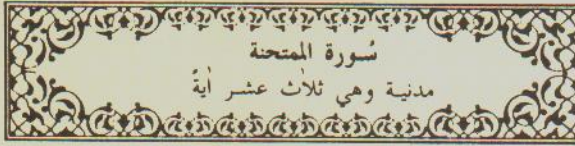 سُورة الممتحنة
مدنية وهي ثلاث عشر اٰيةً